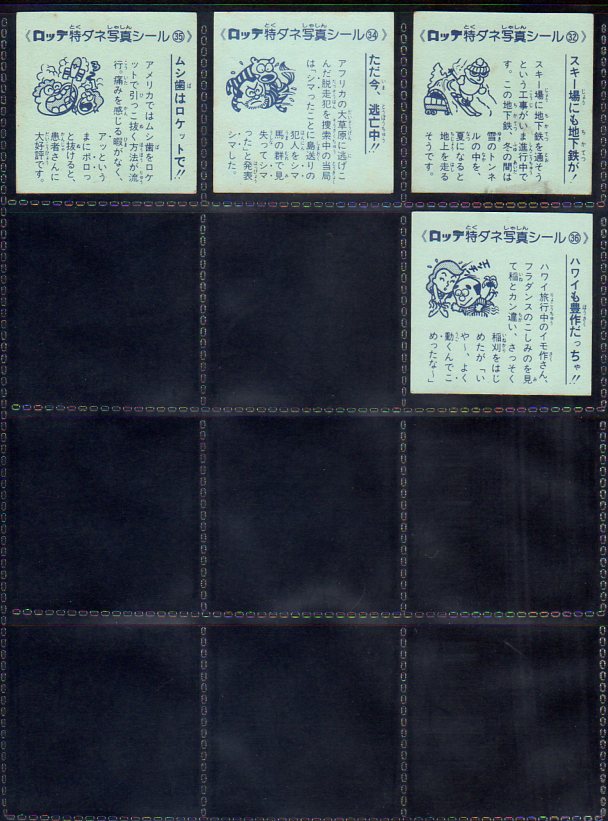 《ロッテ特ダネ写真シール㉟》
ムシ歯はロケットで!!
アメリカではムシ歯をロケ
ットで引っこ抜く方法が流
行。痛みを感じる暇がなく、
アッという
まにポロっ
と抜けると、
患者さんに
大好評です。
《ロッテ特ダネ写真シール㉞》
ただ今、逃亡中!!
アフリカの大草原に逃げこ
んだ脱走犯を捜索中の当局
は、“シマったことに島送りの
犯人をシマ
馬の群で見
失ってシマ
った”と発表
シマした。
《ロッテ特ダネ写真シール㉜》
スキー場にも地下鉄が
スキー場に地下鉄を通そう
という工事がいま進行中で
す。この地下鉄、冬の間は
雪のトンネ
ルの中を、
夏になると
地上を走る
そうです。
《ロッテ特ダネ写真シール㊱》
ハワイも豊作だっちゃ!!
ハワイ旅行中のイモ作さん、
フラダンスのこしみのを見
て稲とカン違い、さっそく
稲刈をはじ
めたが「い
や〜、よく
動くんでこ
めったな〜」